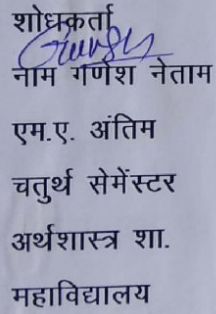 शोधकर्ता
नाम गणेश नेताम
एम.ए. अंतिम
चतुर्थ सेमेंस्टर
अर्थशास्त्र शा.
महाविद्यालय